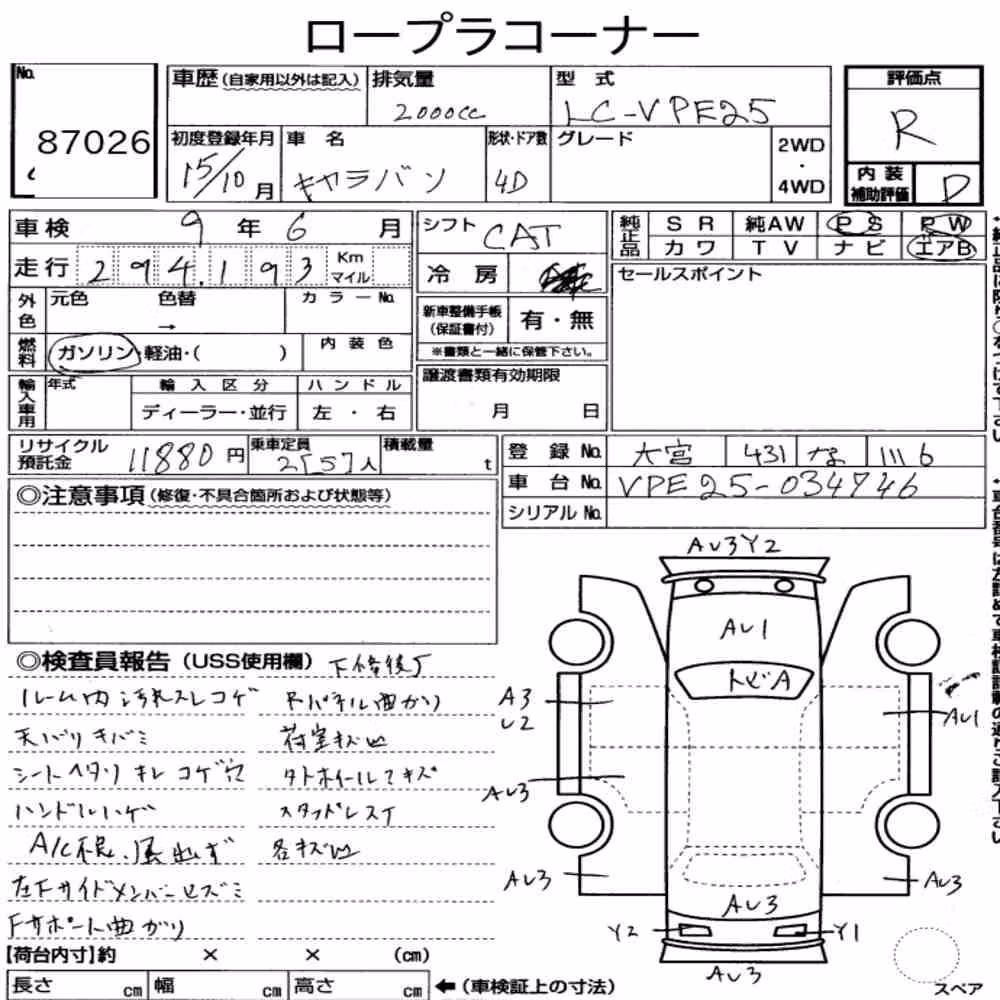 ロープラコーナー
No.
87026
車歴 (自家用以外は記入)
排気量
2000cc
型 式
LC-VPE25
評価点
R
初度登録年月
15/10 月
車 名
キャラバン
形状・ドア数
4D
グレード
2WD
・
4WD
内 装
補助評価
D
車検 9 年 6 月
シフト
CAT
純正品
S R 純AW P S P W
カ ワ T V ナ ビ エアB
走行 2 9 4.1 9 3 Km
マイル
冷 房
セールスポイント
外色
元色 色替 →
カ ラ ー No.
新車整備手帳
(保証書付)
有・無
※書類と一緒に保管下さい。
燃料
ガソリン・軽油・( )
内 装 色
輸入車用
年式
輸 入 区 分
ハ ン ド ル
ディーラー・並行
左 ・ 右
譲渡書類有効期限
月 日
リサイクル
預託金
11880 円
乗車定員
2[5]人
積載量
t
登 録 No. 大宮 431 な 1116
車 台 No. VPE25-034746
シリアル No.
◎注意事項 (修復・不具合箇所および状態等)
◎検査員報告 (USS使用欄) 下修後了
ルーム内 汚れスレコゲ Rパネル曲がり
天バリ キバミ 荷室キズ凹
シートヘタリ キレ コゲ穴
ハンドルハゲ
A/C不良、風出ず 各キズ凹
左Fサイドメンバーヒズミ
Fサポート曲がり
【荷台内寸】約 × × (cm)
長さ cm 幅 cm 高さ cm
←(車検証上の寸法)
AU3Y2
AU1
トビA
A3
U2
AU1
AU3
AU3
AU3
AU3
Y2
Y1
AU3
スペア